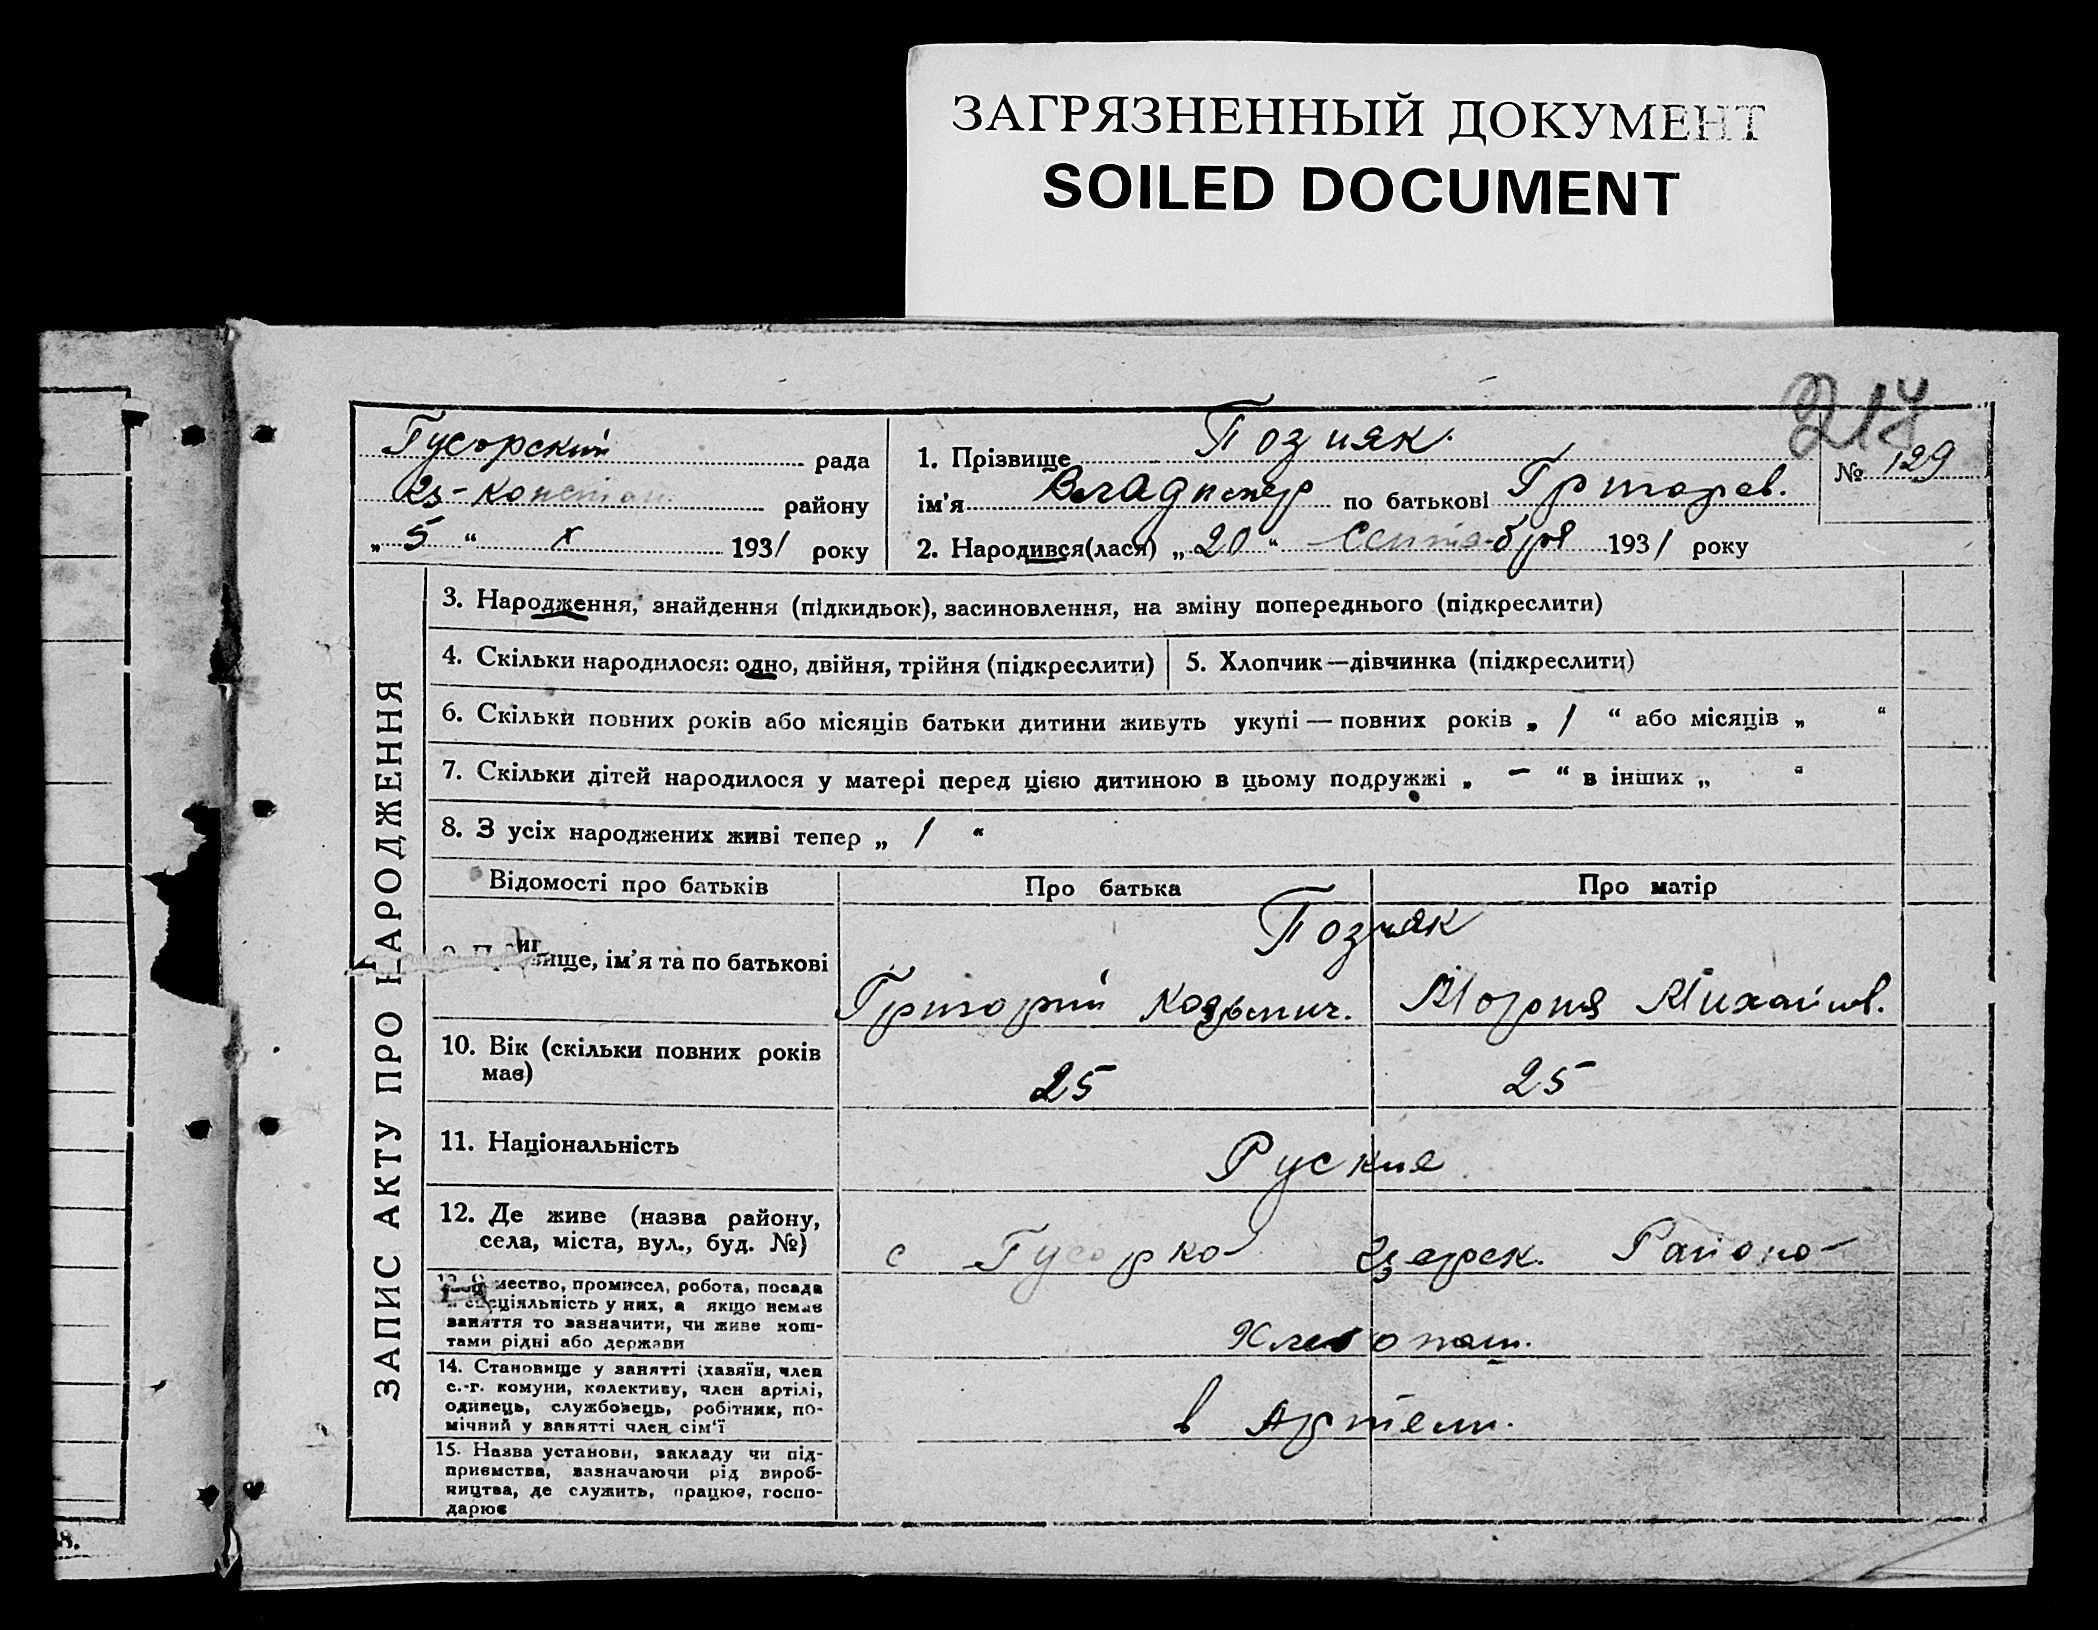 ЗАГРЯЗНЕННЫЙ ДОКУМЕНТ
SOILED DOCUMENT
217
Гусорский рада
району
„ 5 “ X 1931 року
1. Прізвище Позняк.
№ 129
ім'я Владимер по батькові Григорев.
2. Народився(лася) „ 20 “ Сентабря 1931 року
ЗАПИС АКТУ ПРО НАРОДЖЕННЯ
3. Народження, знайдення (підкидьок), засиновлення, на зміну попереднього (підкреслити)
4. Скільки народилося: одно, двійня, трійня (підкреслити)
5. Хлопчик—дівчинка (підкреслити)
6. Скільки повних років або місяців батьки дитини живуть укупі — повних років „ 1 “ або місяців „ “
7. Скільки дітей народилося у матері перед цією дитиною в цьому подружжі „ — “ в інших „ “
8. З усіх народжених живі тепер „ 1 “
Відомості про батьків
Про батька
Про матір
ище, ім'я та по батькові
Позняк
Григорий Козьмич.
Мория Михайлов.
10. Вік (скільки повних років
має)
25
25
11. Національність
Руские
12. Де живе (назва району,
села, міста, вул., буд. №)
с Гусорко Району
мество, промисел, робота, посада
спеціяльність у них, а якщо немає
заняття то зазначити, чи живе кош-
тами рідні або держави
Хлебопаш.
14. Становище у занятті (хазяїн, член
с.-г. комуни, колективу, член артілі,
одинець, службовець, робітник, по-
мічний у занятті член сім'ї
в Артели.
15. Назва установи, закладу чи під-
приємства, зазначаючи рід вироб-
ництва, де служить, працює, госпо-
дарює
8.